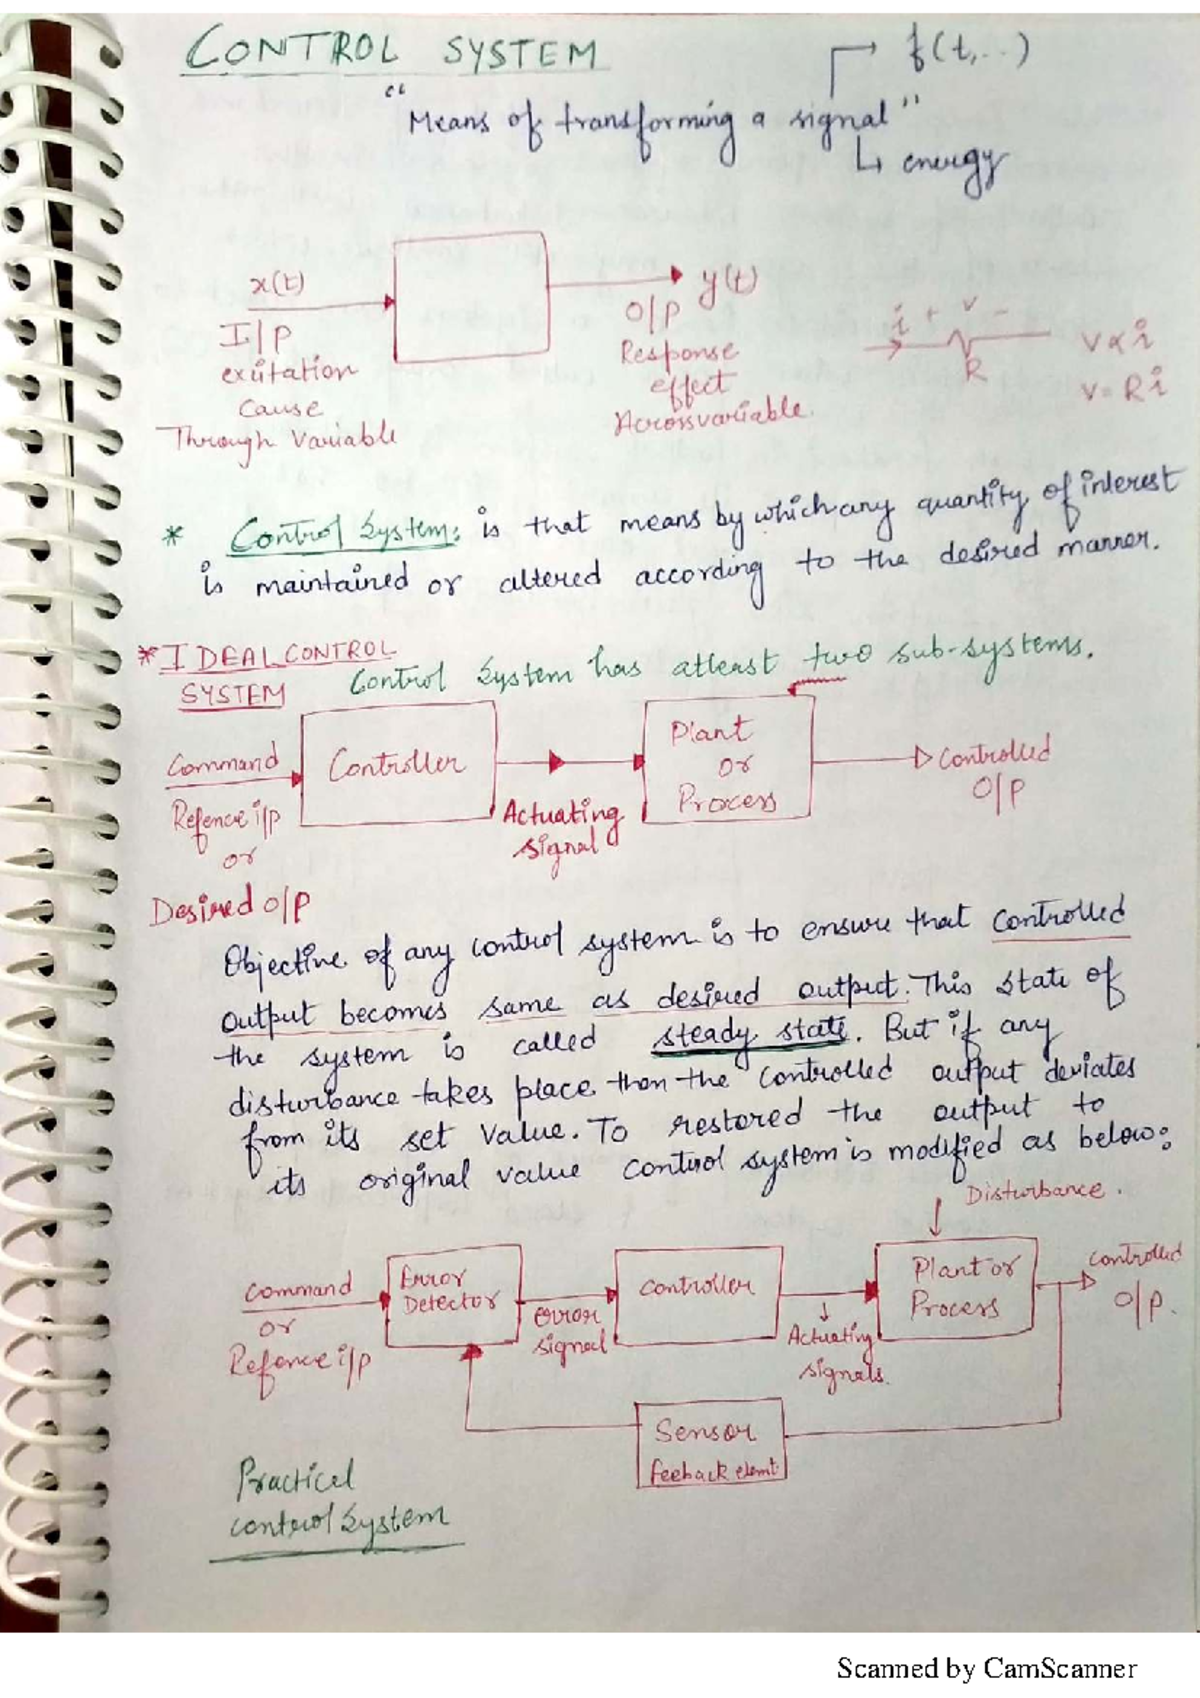 CONTROL SYSTEM
f(t,..)
"Means of transforming a signal"
↳ energy
x(t)
I/P
exitation
cause
Through Variable
y(t)
O/P
Response
effect
Acrossvariable.
i + v -
R
v ∝ i
v = Ri
* Control System: is that means by which any quantity of interest
is maintained or altered according to the desired manner.
* IDEAL CONTROL
SYSTEM
Control System has atleast two sub-systems.
Command
Refence i/p
or
Desired O/P
Controller
Actuating
signal
Plant
or
Process
Controlled
O/P
Objective of any control system is to ensure that controlled
output becomes same as desired output. This state of
the system is called steady state. But if any
disturbance takes place then the controlled output deviates
from its set value. To restored the output to
its original value control system is modified as below:
Disturbance.
Command
or
Refence i/p
Error
Detector
error
signal
Controller
Actuating
signals.
Plant or
Process
controlled
O/P.
Sensor
feeback elemt.
Practical
control System
Scanned by CamScanner